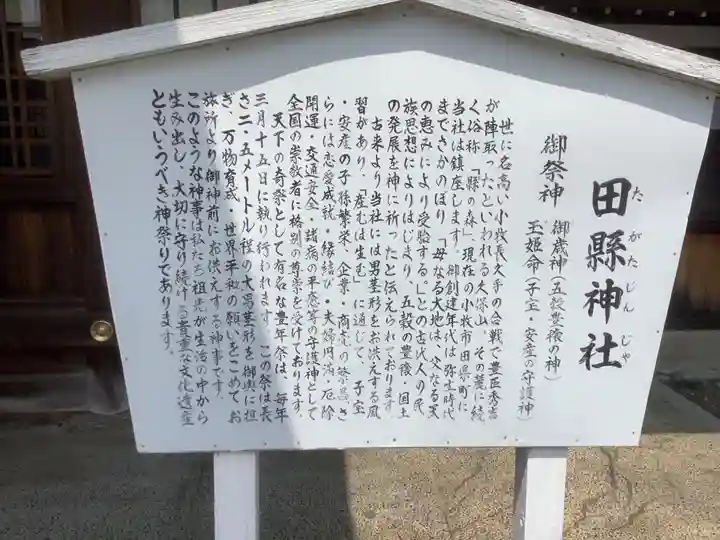 田縣神社
たがたじんじゃ
御祭神 御歳神（五穀豊穣の神）
玉姫命（子宝・安産の守護神）
世に名高い小牧長久手の合戦で豊臣秀吉
が陣取ったといわれる久保山、その麓に続
く俗称「縣の森」、現在の小牧市田県町に
当社は鎮座します。御創建年代は弥生時代
までさかのぼり「母なる大地は、父なる天
の恵みにより受胎する。」との古代人の民
族思想によりはじまり、五穀の豊穣・国土
の発展を神に祈ったと伝えられております。
古来より当社には男茎形をお供えする風
習があり、「産むは生む」に通じて、子宝
・安産の子孫繁栄、企業・商売の繁昌、さ
らには恋愛成就・縁結び・夫婦円満・厄除
開運・交通安全・諸病の平癒等の守護神として
全国の崇敬者に格別の尊崇を受けております。
天下の奇祭として有名な豊年祭は、毎年
三月十五日に執り行われます。この祭は長
さ二・五メートル程の大男茎形を御輿に担
ぎ、万物育成、世界平和の願いをこめてお
旅所より御神前にお供えする神事です。
このような神事は私たち祖先が生活の中から
生み出し、大切に守り続ける貴重な文化遺産
ともいうべき神祭りであります。